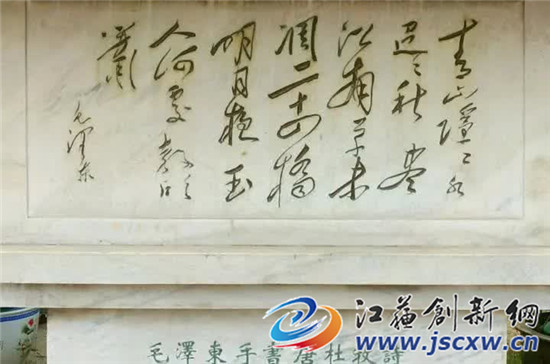 青山隱々水
迢々秋盡
江南草木
凋二十四橋
明月夜玉
人何處教吹
簫
毛澤东
毛澤東手書唐杜牧詩
江蘇創新網
www.jscxw.cn